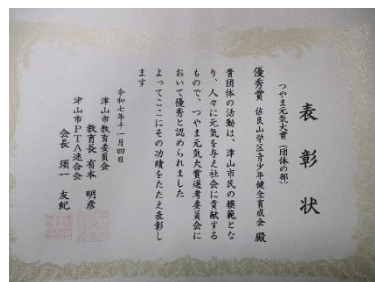 表彰状
つやま元気大賞(団体の部)
優秀賞 佐良山学区青少年健全育成会 殿
貴団体の活動は、津山市民の模範とな
り、人々に元気を与え社会に貢献する
もので、つやま元気大賞選考委員会に
おいて優秀と認められました
よってここにその功績をたたえ表彰し
ます
令和七年十一月四日
津山市教育委員会
教育長 有本 明彦
津山市PTA連合会
会長 須一 友紀